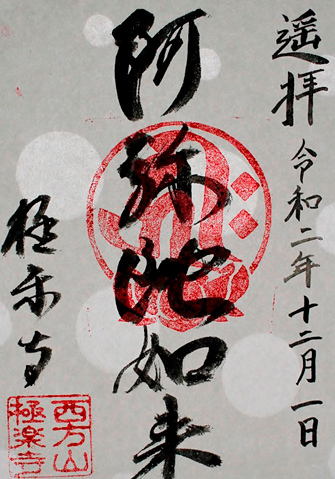 遥拝 令和二年十二月一日
阿弥陀如来
極楽寺
西方山
極楽寺